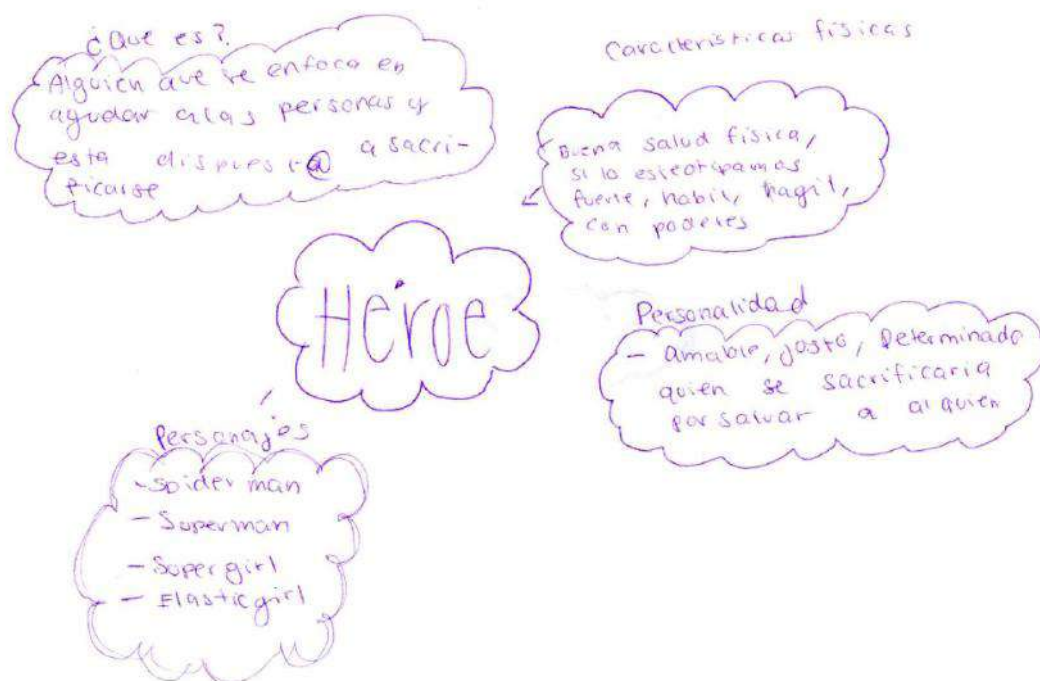 ¿Que es?
Alguien que se enfoca en
ayudar a las personas y
esta dispuest@ a sacri-
ficarse
Caracteristicas físicas
Buena salud física,
si lo esteotipamos
fuerte, habil, hagil,
con poderes
Héroe
Personalidad
- amable, justo, Determinado
quien se sacrificaria
por salvar a alguien
Personajes
- Spiderman
- Superman
- Supergirl
- Elasticgirl